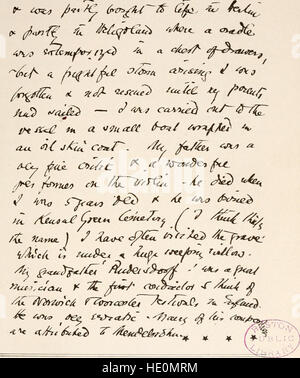 & was partly brought to life in Berlin
& partly in Heligoland where a cradle
was extemporized in a chest of drawers,
but a frightful storm arising I was
forgotten & not rescued until my parents
had sailed — I was carried out to the
vessel in a small boat wrapped in
an oil skin coat. My father was a
very fine critic & a wonderful
performer on the violin. he died when
I was 5 years old & he was buried
in Kensal Green Cemetery (I think that's
the name) I have often visited the grave
which is under a huge weeping willow.
My grandfather Rudersdorff was a great
musician & the first conductor I think of
the Norwich & Worcester Festivals in England.
He was very erratic. Many of his compositions
are attributed to Mendelssohn. * * * *
BOSTON
PUBLIC
LIBRARY
alamy
Image ID: HE0MRM
www.alamy.com